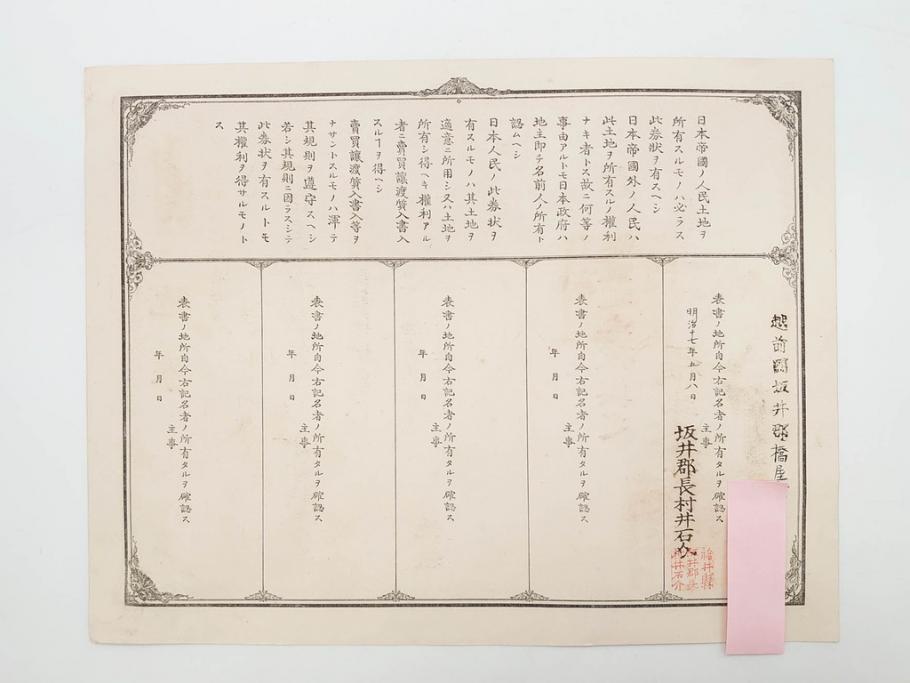 日本帝國ノ人民土地ヲ
所有スルモノハ必ラス
此券狀ヲ有スヘシ
日本帝國外ノ人民ハ
此土地ヲ所有スルノ權利
ナキ者トス故ニ何等ノ
事由アルトモ日本政府ハ
地主即チ名前人ノ所有ト
認ムヘシ
日本人民ノ此券狀ヲ
有スルモノハ其土地ヲ
適意ニ所用シ又ハ土地ヲ
所有シ得ヘキ權利アル
者ニ賣買讓渡質入書入
スルヿヲ得ヘシ
賣買讓渡質入書入等ヲ
ナサントスルモノハ渾テ
其規則ヲ遵守スヘシ
若シ其規則ニ因ラスシテ
此券狀ヲ有スルトモ
其權利ヲ得サルモノト
ス
越前國坂井郡橋屋
表書ノ地所自今右記名者ノ所有タルヲ確認ス
主事
明治十七年五月八日
坂井郡長村井石介
福井縣
坂井郡長
村井石介
表書ノ地所自今右記名者ノ所有タルヲ確認ス
主事
年 月 日
表書ノ地所自今右記名者ノ所有タルヲ確認ス
主事
年 月 日
表書ノ地所自今右記名者ノ所有タルヲ確認ス
主事
年 月 日
表書ノ地所自今右記名者ノ所有タルヲ確認ス
主事
年 月 日